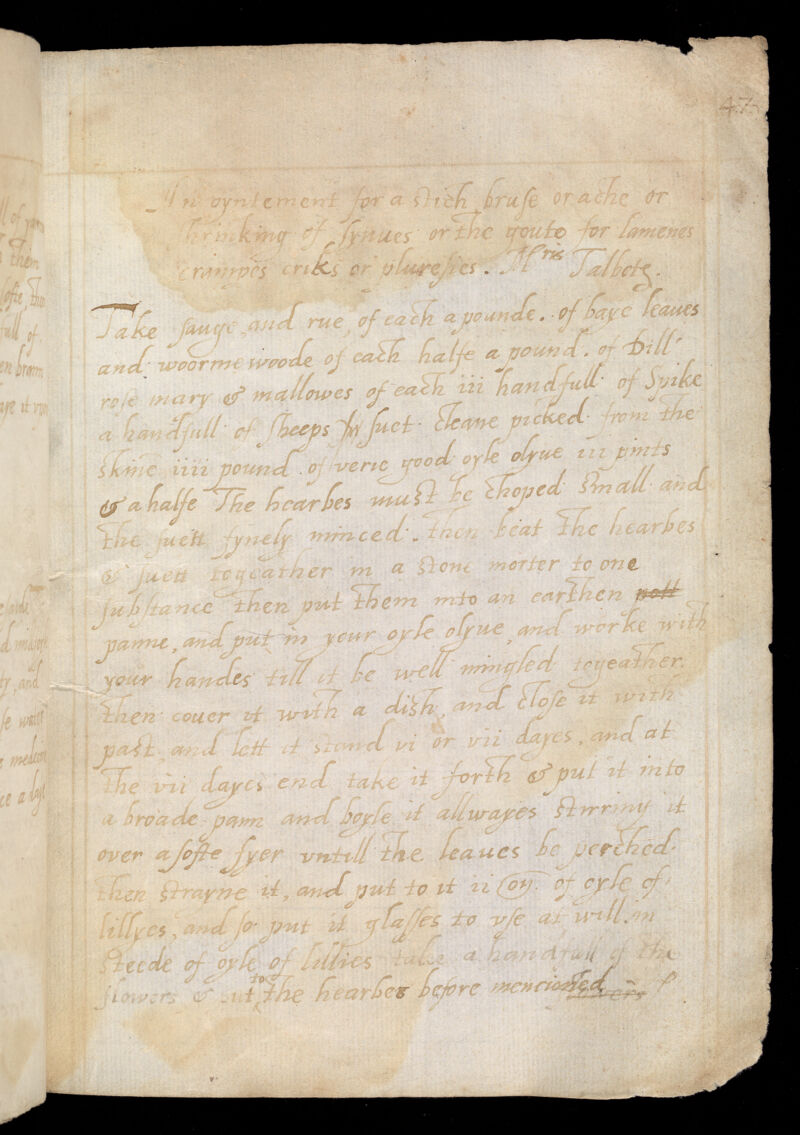 47
An oyntement for a stich bruse or ache or
shrinking of synues or the goute for lamenes
crampes criks or pluresies. Mris Talbots.
Take sauge, and rue, of each a pounde. of baye leaues
and woormewoode of each halfe a pound. of Dill
rose mary & mallowes of each iii handfull of Spike
a handfull of sheeps suet cleane picked from the
skine iiii pound of verie good oyle olyue iii pints
& a halfe The hearbes must be choped small and
the suett fynely minced. then beat the hearbes
& suett togeather in a stone morter to one
substance then put them into an earthen pott
panne, and put in your oyle olyue, and worke with
your handes till it be well mingled togeather.
then couer it with a dish, and close it with
past, and lett it stand vi or vii dayes, and at
the vii dayes end take it forth & put it into
a broade pann and boyle it allwayes stirring it
over a softe fyer vntill the leaues be perched.
then strayne it, and put to it ii oz. of oyle of
lillyes, and so put it glasses to vse at will. in
steede of oyle of lillies take a handfull of the
flowers & put to the hearbes before mencioned